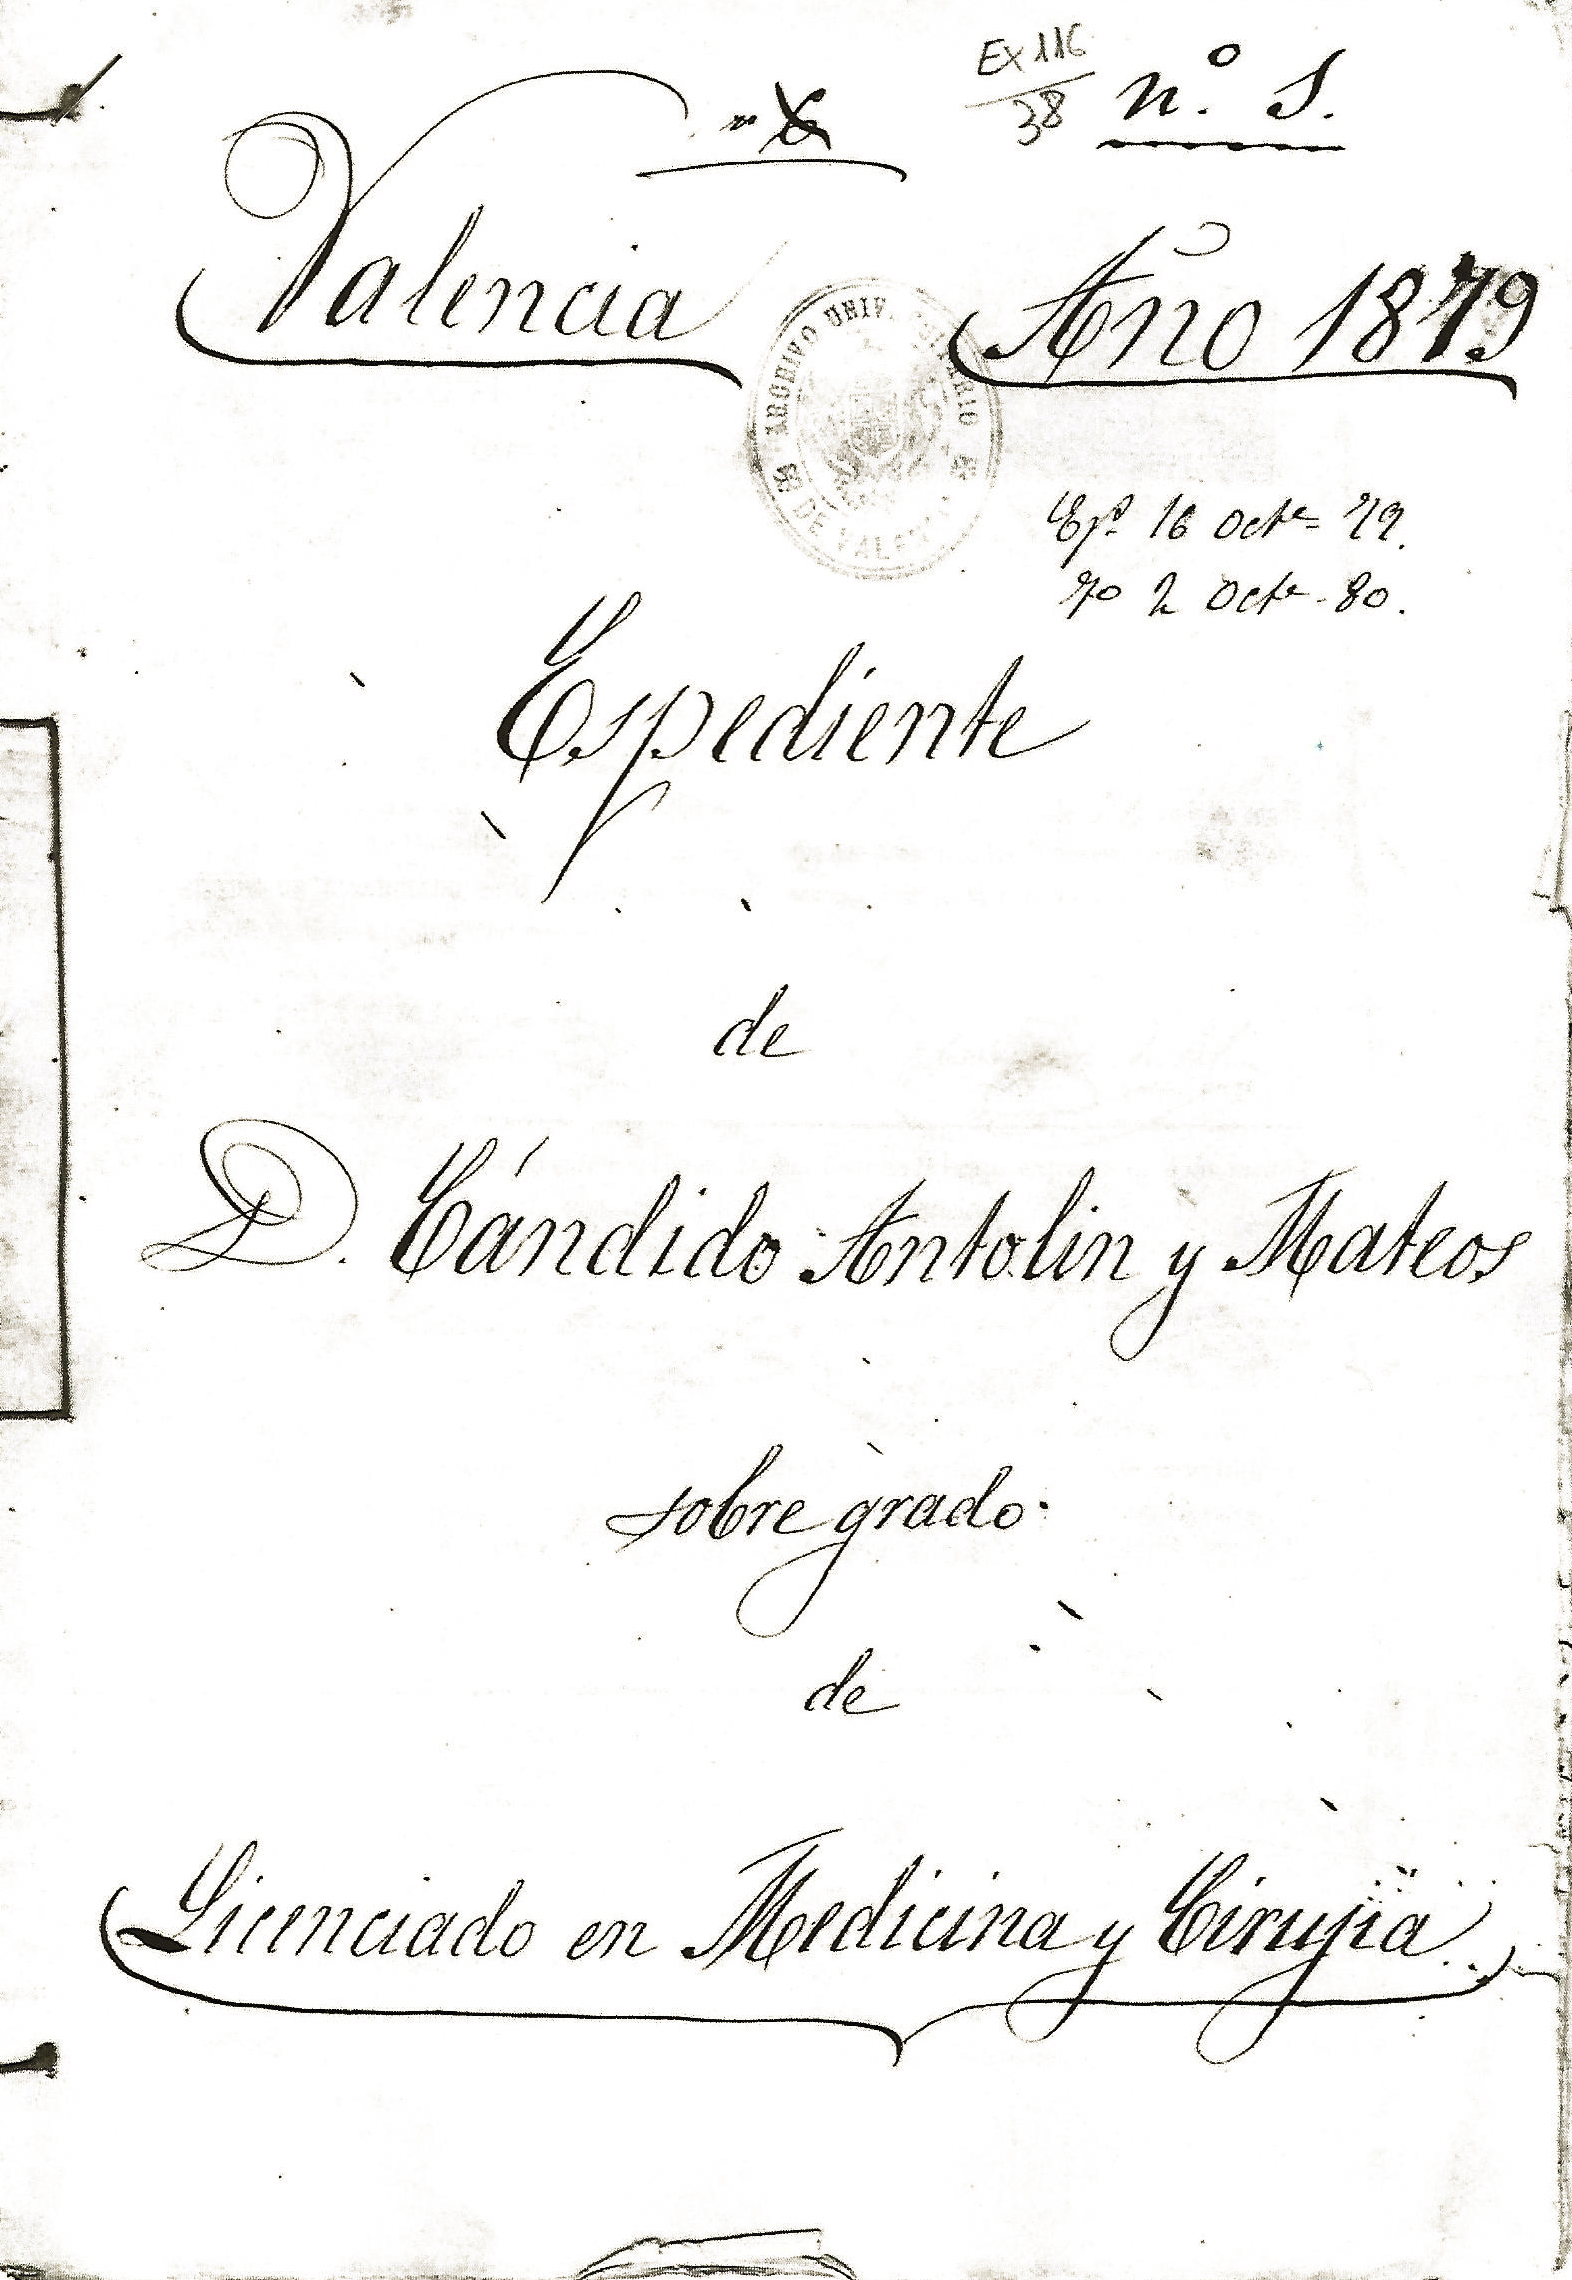 Ex 116
38
nº S.
Valencia Año 1879
ARCHIVO UNIVERSITARIO
DE VALENCIA
16 Octe 79.
2 Octe 80.
Espediente
de
D. Cándido Antolin y Mateos
sobre grado
de
Licenciado en Medicina y Cirujia